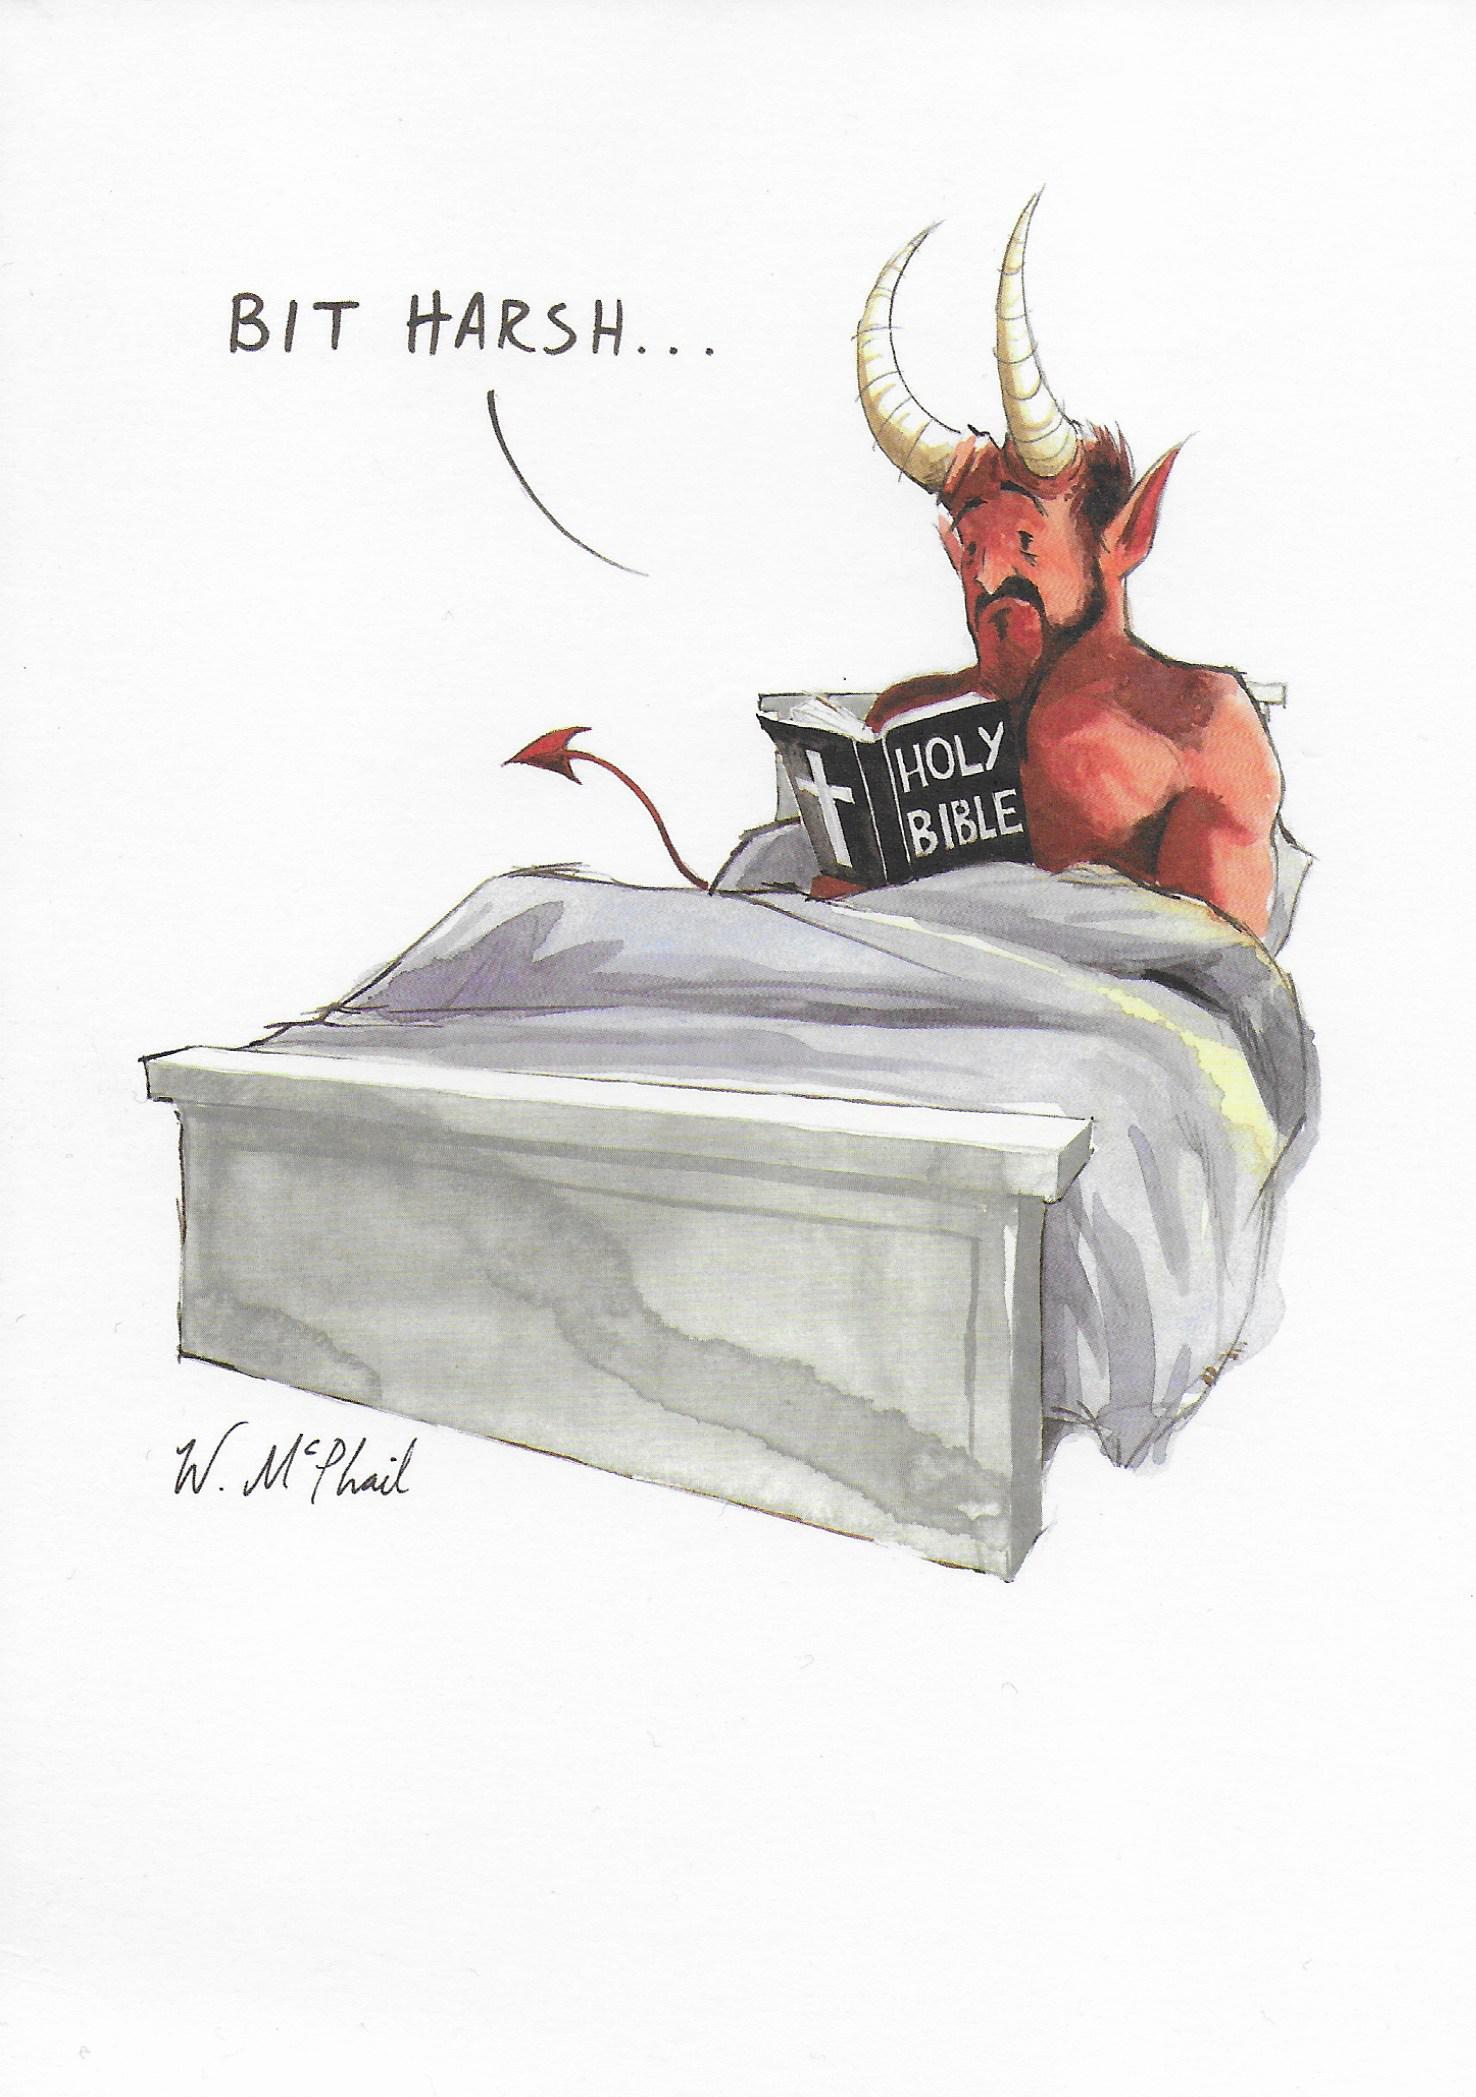 BIT HARSH...
HOLY
BIBLE
W. McPhail